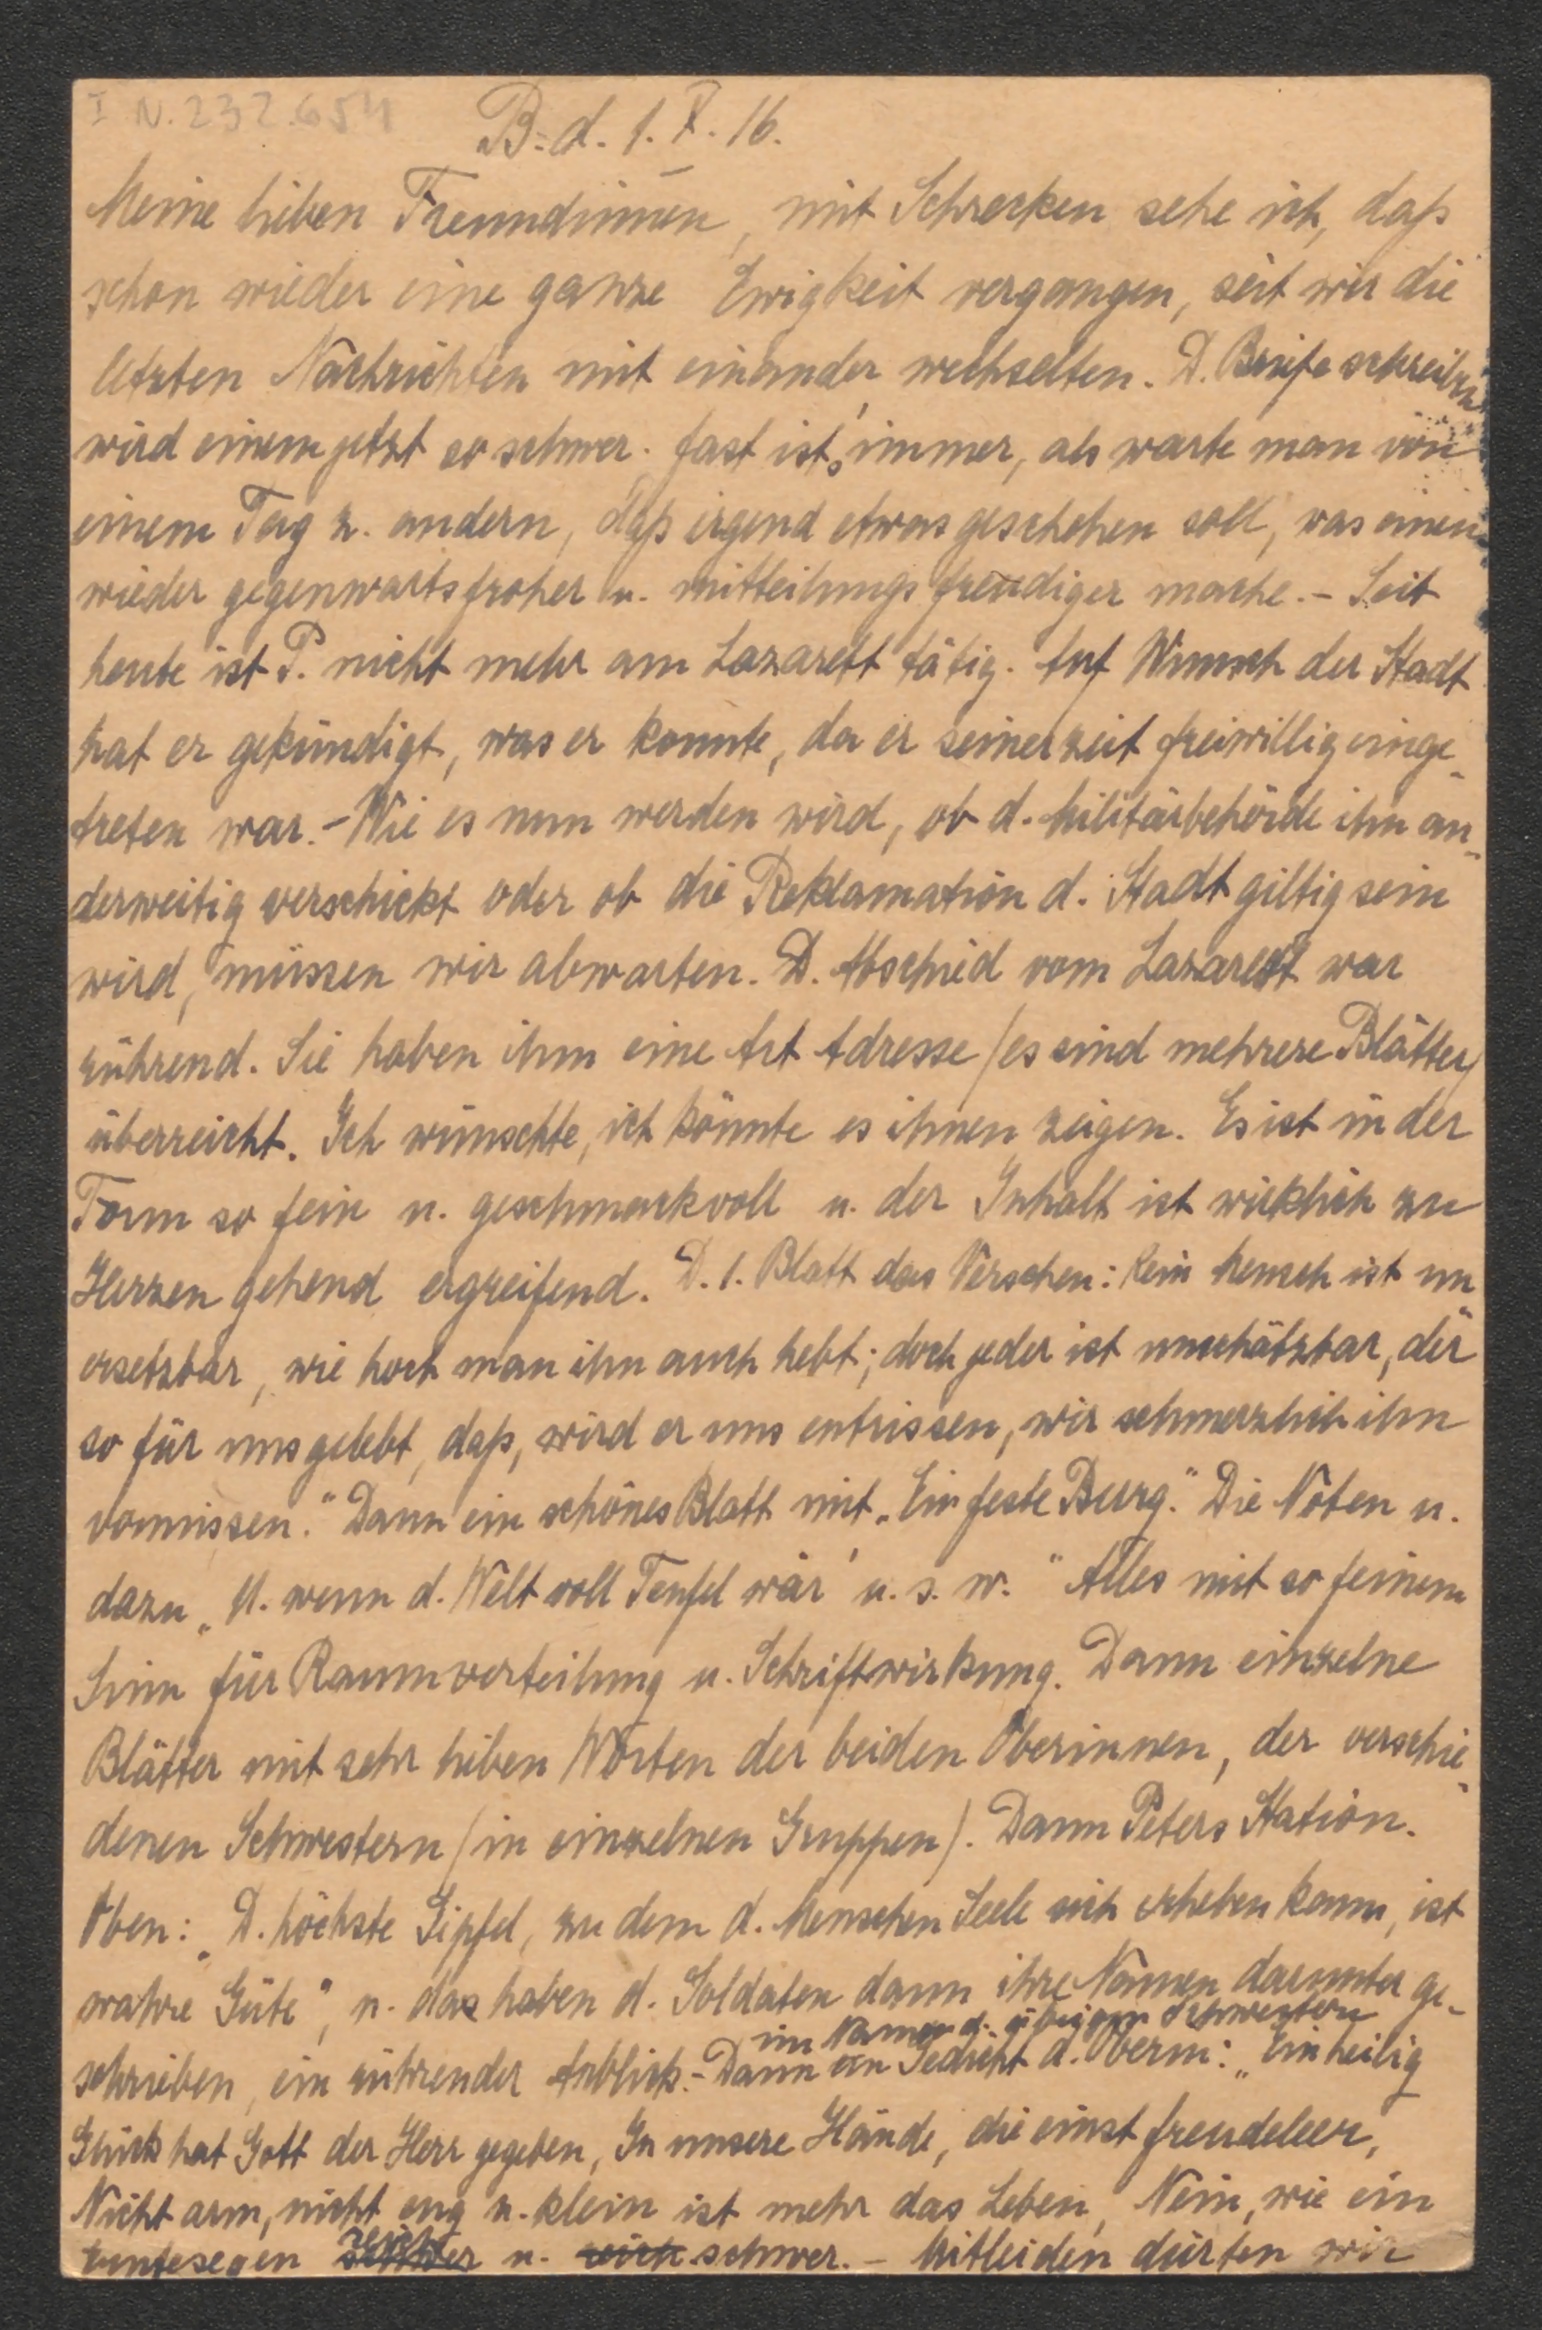 I N. 232.654
B.d. 1. X. 16.
Meine lieben Freundinnen, mit Schrecken sehe ich, daß
schon wieder eine ganze Ewigkeit vergangen, seit wir die
letzten Nachrichten mit einander wechselten. D. Briefe schreiben
wird einem jetzt so schwer. fast ist's immer, als warte man von
einem Tag z. andern, daß irgend etwas geschehen soll, was einen
wieder gegenwartsfroher u. mitteilungsfreudiger mache. - Seit
heute ist P. nicht mehr am Lazarett tätig. Auf Wunsch der Stadt
hat er gekündigt, was er konnte, da er seinerzeit freiwillig einge-
treten war. - Wie es nun werden wird, ob d. Militärbehörde ihn an-
derweitig verschickt oder ob die Reklamation d. Stadt giltig sein
wird, müssen wir abwarten. D. Abschied vom Lazarett war
rührend. Sie haben ihm eine Art Adresse (es sind mehrere Blätter)
überreicht. Ich wünschte, ich könnte es ihnen zeigen. Es ist in der
Form so fein u. geschmackvoll u. der Inhalt ist wirklich zu
Herzen gehend ergreifend. D. 1. Blatt das Verschen: Kein Mensch ist un
ersetzbar, wie hoch man ihn auch hebt; doch jeder ist unschätzbar, der
so für uns gelebt, daß, wird er uns entrissen, wir schmerzlich ihn
vermissen." Dann ein schönes Blatt mit „Ein feste Burg." Die Noten u.
dazu „U. wenn d. Welt voll Teufel wär' u. s. w." Alles mit so feinem
Sinn für Raumverteilung u. Schriftwirkung. Dann einzelne
Blätter mit sehr lieben Worten der beiden Oberinnen, der verschie-
denen Schwestern (in einzelnen Gruppen). Dann Peters Station.
Oben: „D. höchste Gipfel, zu dem d. Menschen Seele sich erheben kann, ist
wahre Güte", u. das haben d. Soldaten dann ihre Namen darunter ge-
im Namen d. übrigen Schwestern
schrieben, ein rührender Anblick. - Dann ein Gedicht d. Oberin: „Ein heilig
Glück hat Gott der Herr gegeben, In unsere Hände, die einst freudeleer,
Nicht arm, nicht eng u. klein ist mehr das Leben, Nein, wie ein
Erntesegen reich u. schwer. - Mitleiden durften wir